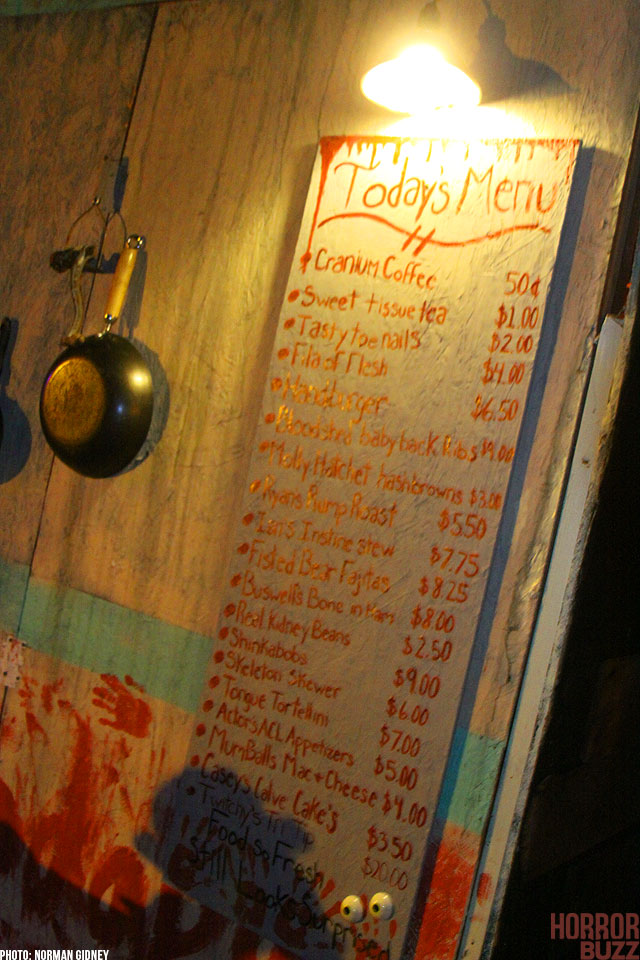 Todays Menu
Cranium Coffee 50¢
Sweet tissue tea $1.00
Tasty toe nails $2.00
Fila of Flesh $4.00
Handburger $6.50
Bloodshed baby back Ribs $9.00
Molly Hatchet hashbrowns $3.00
Ryans Rump Roast $5.50
Ian's Instine stew $7.75
Fisted Bear Fajitas $8.25
Buswell's Bone in Ham $8.00
Real Kidney Beans $2.50
Shinkabobs $9.00
Skeleton Skewer $6.00
Tongue Tortellini $7.00
Actors ACL Appetizers $5.00
MumBalls Mac + Cheese $4.00
Casey's Calve Cake's $3.50
Twitchy's Tri Tip $20.00
Food so Fresh
Still Looks Surprised
HORROR
BUZZ
PHOTO: NORMAN GIDNEY